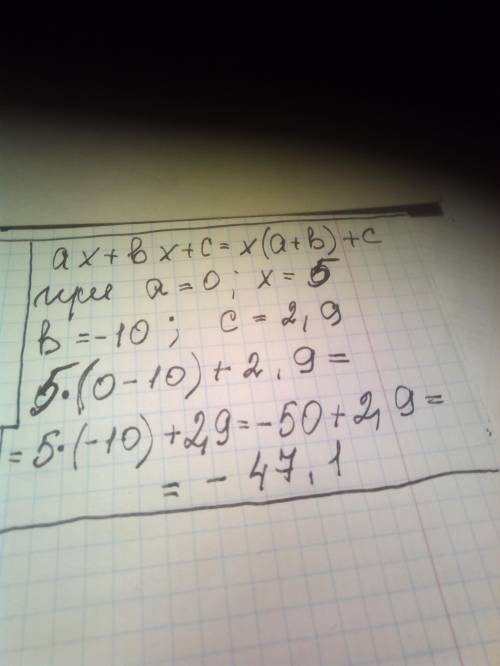 ax+вx+c=x(a+в)+c
при a=0; x=5
в=-10; c=2,9
5·(0-10)+2,9=
=5·(-10)+2,9=-50+2,9=
=-47,1